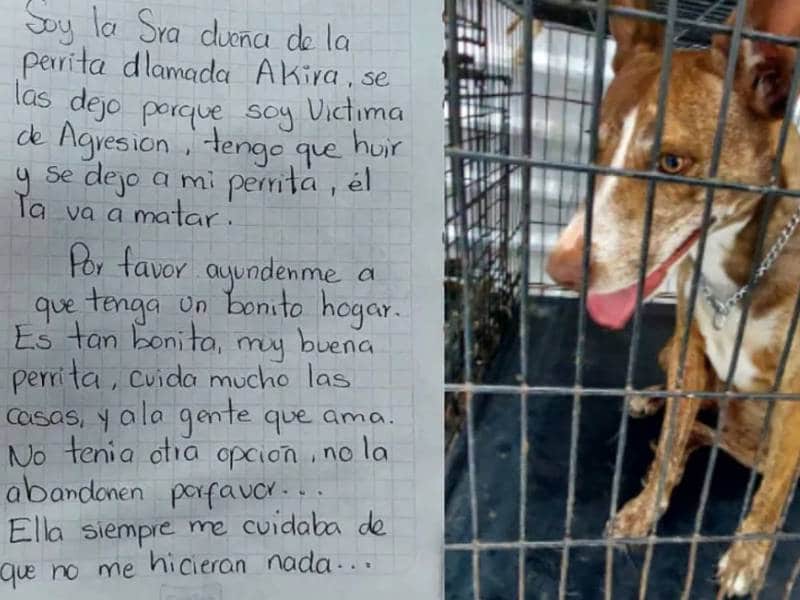 Soy la Sra dueña de la
perrita dlamada Akira, se
las dejo porque soy Victima
de Agresion, tengo que huir
y se dejo a mi perrita, él
la va a matar.
Por favor ayundenme a
que tenga un bonito hogar.
Es tan bonita, muy buena
perrita, cuida mucho las
casas, y ala gente que ama.
No tenia otra opcion, no la
abandonen porfavor...
Ella siempre me cuidaba de
que no me hicieran nada...